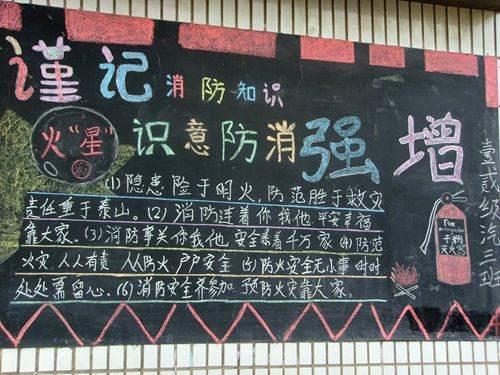 谨记消防知识
火"星"识意防消强增
(1)隐患险于明火，防范胜于救灾
责任重于泰山。(2)消防连着你我他 平安幸福
靠大家。(3)消防事关你我他，安全系着千万家 (4)防范
火灾 人人有责 人人防火 户户安全 (5)防火安全无小事 时时
处处需留心。(6)消防安全齐参加 预防火灾靠大家。
干粉
灭火器
壹贰级汽三班